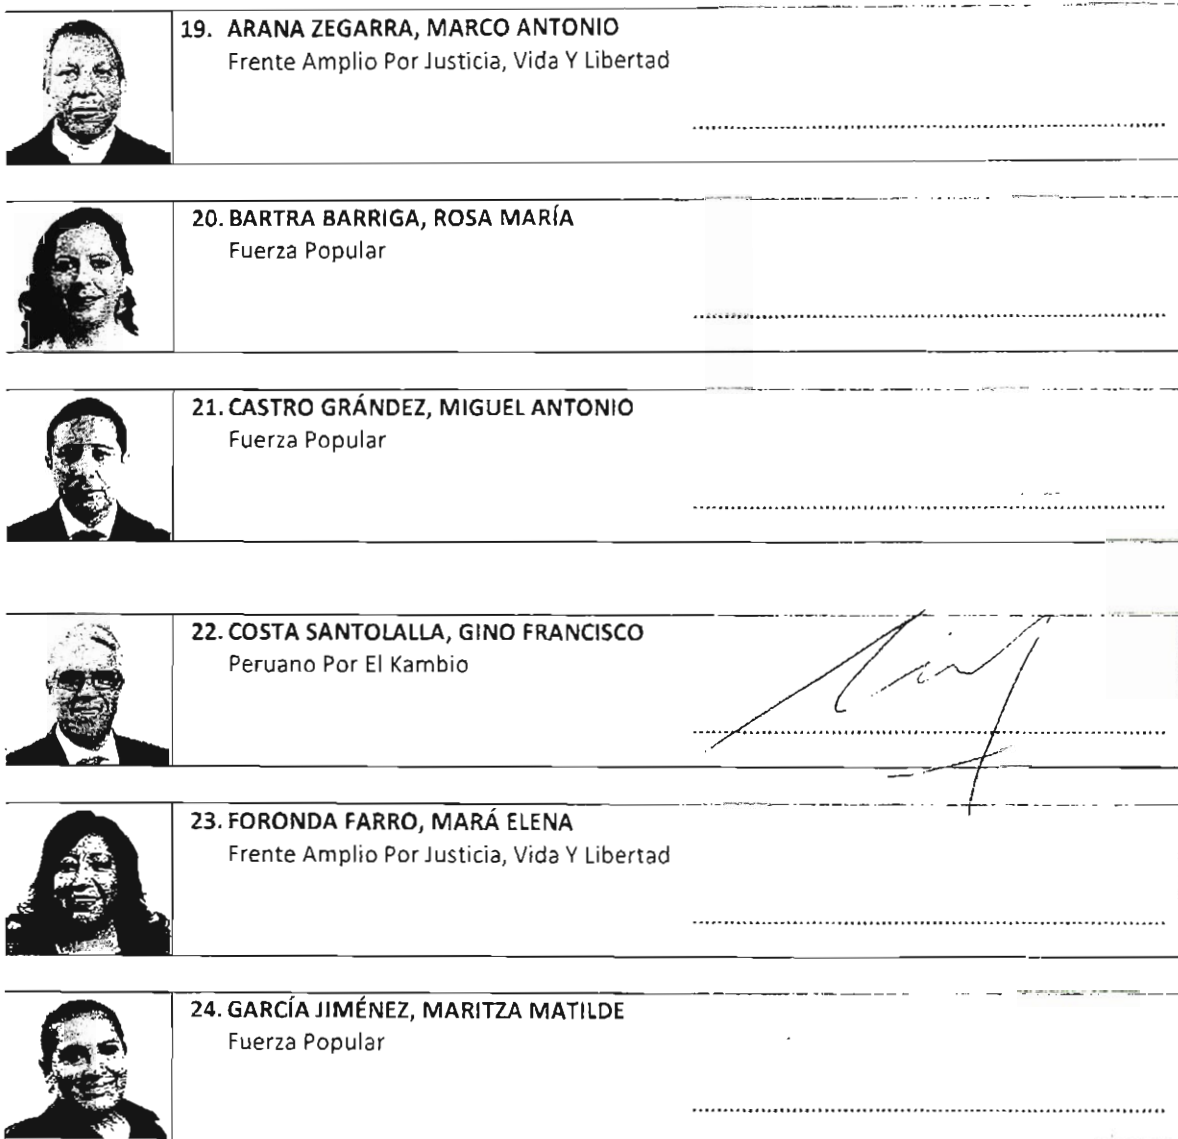 19. ARANA ZEGARRA, MARCO ANTONIO
Frente Amplio Por Justicia, Vida Y Libertad
20. BARTRA BARRIGA, ROSA MARÍA
Fuerza Popular
21. CASTRO GRÁNDEZ, MIGUEL ANTONIO
Fuerza Popular
22. COSTA SANTOLALLA, GINO FRANCISCO
Peruano Por El Kambio
23. FORONDA FARRO, MARÁ ELENA
Frente Amplio Por Justicia, Vida Y Libertad
24. GARCÍA JIMÉNEZ, MARITZA MATILDE
Fuerza Popular